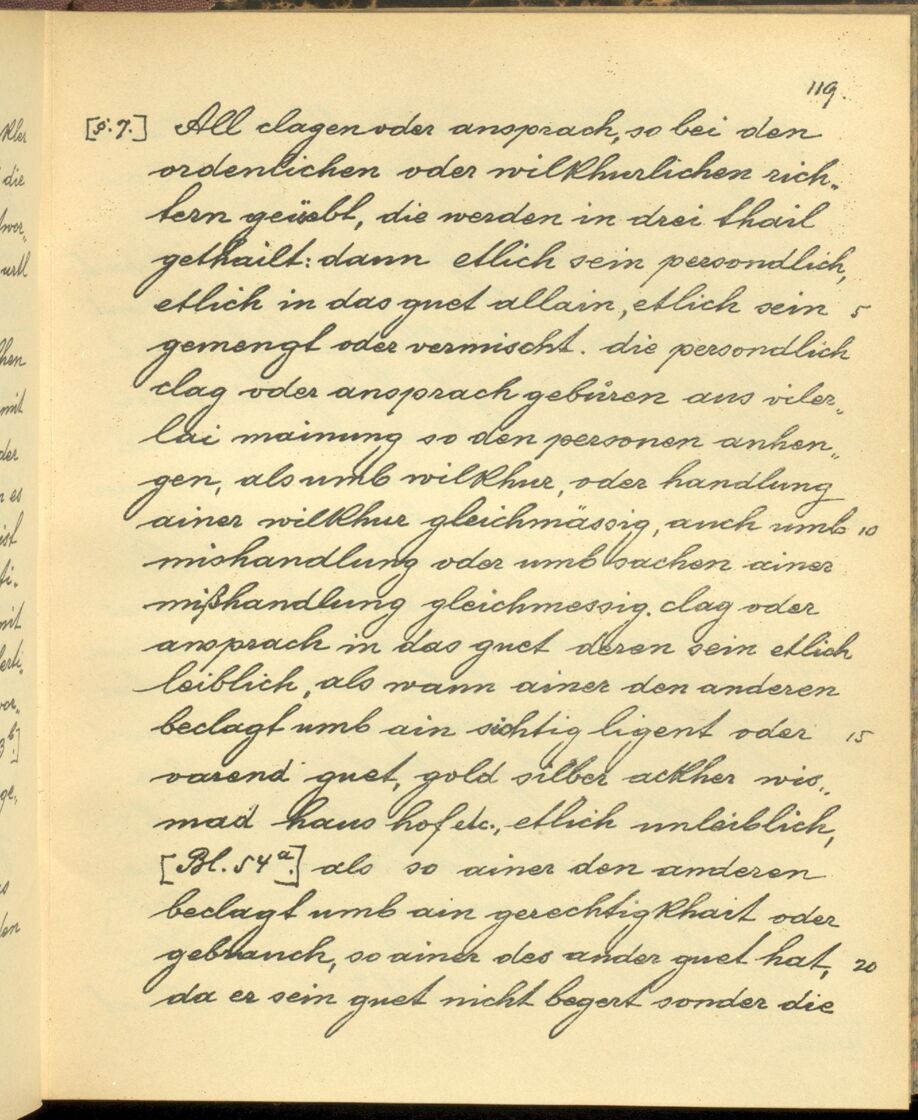 119.
[§. 7.] All clagen oder ansprach, so bei den
ordenlichen oder wilkhurlichen rich„
tern geüebt, die werden in drei thail
gethailt: dann etlich sein persondlich,
etlich in das guet allain, etlich sein 5
gemengt oder vermischt. die persondlich
clag oder ansprach gebüren aus viler„
lai mainung so den personen anhen„
gen, als umb wilkhur, oder handlung
ainer wilkhur gleichmässig, auch umb 10
mishandlung oder umb sachen ainer
mißhandlung gleichmessig. clag oder
ansprach in das guet deren sein etlich
leiblich, als wann ainer den anderen
beclagt umb ain sichtig ligent oder 15
varend guet, gold silber ackher wis„
mad haus hof etc., etlich unleiblich,
[Bl. 54ª.] als so ainer den anderen
beclagt umb ain gerechtigkhait oder
gebrauch, so ainer des ander guet hat, 20
da er sein guet nicht begert sonder die